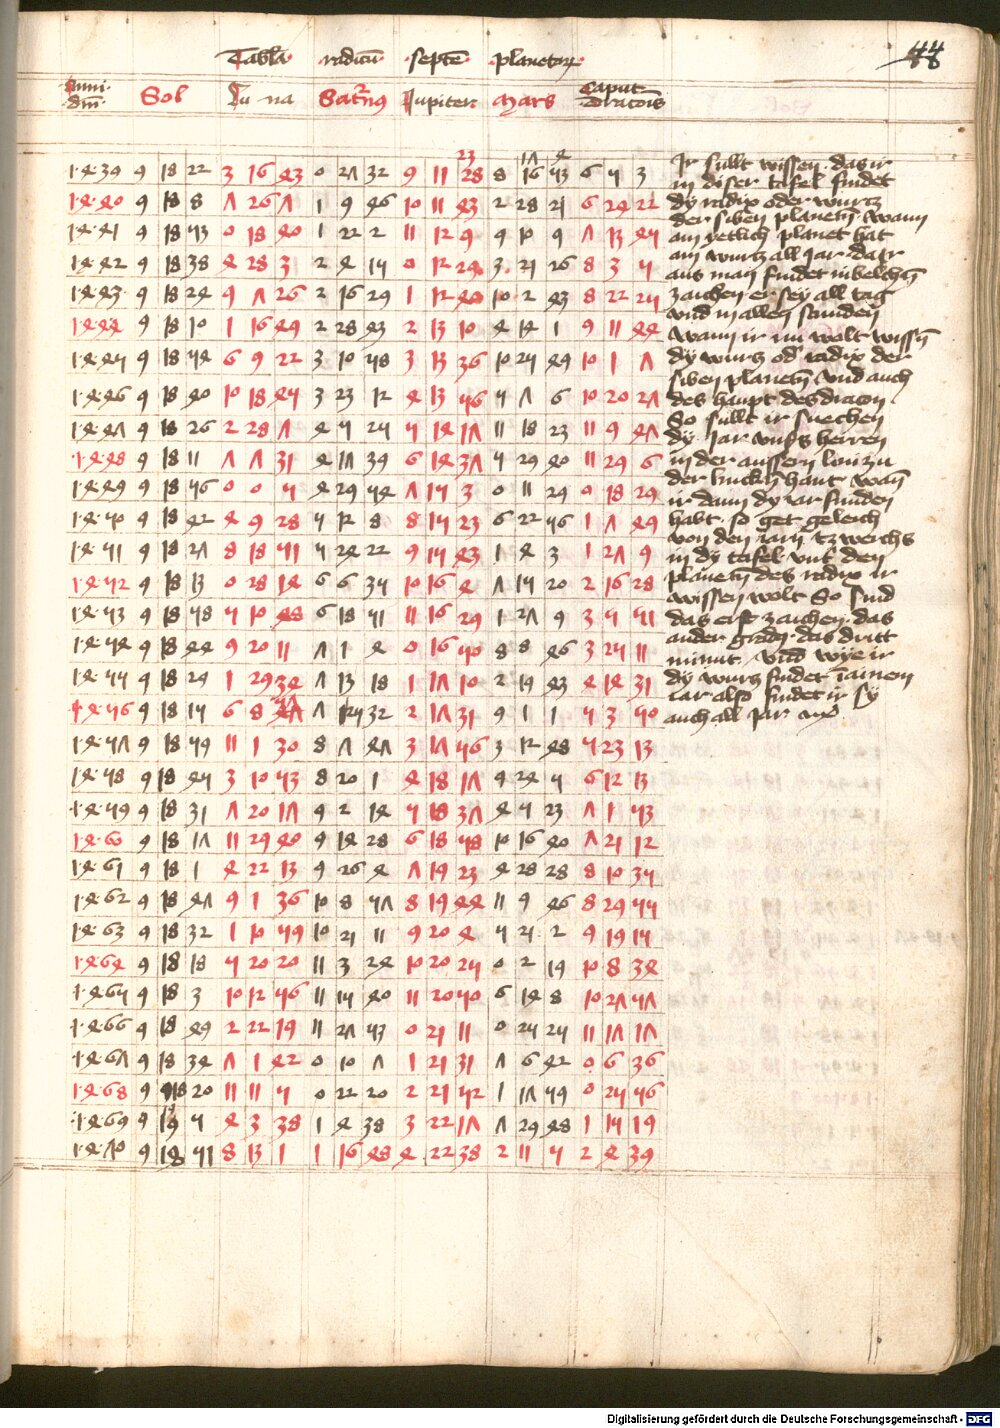 Tabla · radicum · septem · planetorum ·
44
Anni dni · Sol · Luna · Saturnus · Jupiter · Mars · Caput draconis
23 17 4
1439 9 18 22 3 16 43 0 27 32 9 11 28 8 16 53 6 5 3
1440 9 18 8 7 26 7 1 9 46 10 11 43 2 28 21 6 24 22
1441 9 18 53 0 18 40 1 22 2 11 12 9 9 10 9 7 13 45
1442 9 18 38 4 28 3 2 4 15 0 12 24 3 21 26 8 3 5
1443 9 18 24 9 7 26 2 16 29 1 12 40 10 2 43 8 22 25
1444 9 18 10 1 16 49 2 28 43 2 13 10 4 14 1 9 11 44
1445 9 18 54 6 9 22 3 10 58 3 13 36 10 25 49 10 1 7
1446 9 18 40 10 18 45 3 23 12 4 13 56 5 7 6 10 20 27
1447 9 18 26 2 28 7 4 5 25 5 14 17 11 18 23 11 9 47
1448 9 18 11 7 7 31 4 17 39 6 14 37 5 29 40 11 29 6
1449 9 18 56 0 0 5 4 29 54 7 15 3 0 11 29 0 18 29
1450 9 18 42 4 9 28 5 12 8 8 15 23 6 22 56 1 7 49
1451 9 18 27 8 18 51 5 24 22 9 15 43 1 4 3 1 27 9
1452 9 18 13 0 28 14 6 6 35 10 16 4 7 15 20 2 16 28
1453 9 18 58 5 10 48 6 18 51 11 16 29 1 27 9 3 5 51
1454 9 18 44 9 20 11 7 1 4 0 16 50 8 8 46 3 25 11
1455 9 18 29 1 29 34 7 13 18 1 17 10 2 19 43 4 14 31
1456 9 18 15 6 8 57 7 25 32 2 17 31 9 1 1 5 3 50
1457 9 18 59 11 1 30 8 7 47 3 17 56 3 12 48 5 23 13
1458 9 18 45 3 10 53 8 20 1 4 18 17 9 24 5 6 12 13
1459 9 18 31 7 20 17 9 2 14 5 18 37 4 5 23 7 1 53
1460 9 18 17 11 29 40 9 14 28 6 18 58 10 16 40 7 21 12
1461 9 18 1 4 22 13 9 26 4 7 19 23 4 28 28 8 10 35
1462 9 18 47 9 1 36 10 8 57 8 19 44 11 9 46 8 29 55
1463 9 18 32 1 10 59 10 21 11 9 20 4 5 21 2 9 19 15
1464 9 18 18 5 20 20 11 3 24 10 20 25 0 2 19 10 8 34
1465 9 18 3 10 12 56 11 15 40 11 20 50 6 14 8 10 27 57
1466 9 18 49 2 22 19 11 27 53 0 21 11 0 25 25 11 17 17
1467 9 18 34 7 1 42 0 10 7 1 21 31 7 6 42 0 6 36
1468 9 18 20 11 11 5 0 22 20 2 21 52 1 17 59 0 25 56
1469 9 19 5 4 3 38 1 4 38 3 22 17 7 29 48 1 15 19
1470 9 18 51 8 13 1 1 16 48 4 22 38 2 11 5 2 4 39
Ir sullt wissen · das ir
in diser tafel findet
dy radix oder wurtz
der siben planeten · wann
ain yetlich planet hat
ain wurtz all jar · dar
aus man findet in welchem
zaichen er sey all tag
vnd in allen stunden
wann ir nu wolt wissen
dy wurtz oder radix der
siben planeten vnd auch
des haupt des dracon ·
So sullt ir suechen
dy · Jar vnsers herren
in der aussern linien zu
der lincken hant wan
ir dann dy iar funden
habt · so get geleich
von den iarn tzwerchs
in dy tafel vnt den
planeten des radix ir
wissen wolt So sind
das erst zaichen · das
ander gradg · das dritt
minut · vnd wye ir
dy wurtz findet in ainem
iar also findet ir sy
auch all Jar